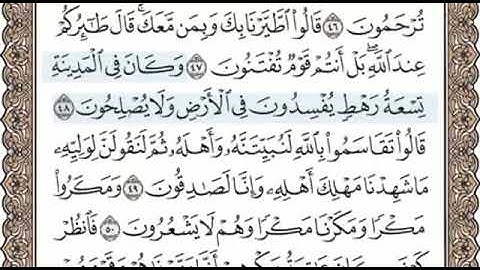 تُرْحَمُونَ ٤٦ قَالُوا۟ ٱطَّيَّرْنَا بِكَ وَبِمَن مَّعَكَ ۚ قَالَ طَـٰٓئِرُكُمْ
عِندَ ٱللَّهِ ۖ بَلْ أَنتُمْ قَوْمٌ تُفْتَنُونَ ٤٧ وَكَانَ فِى ٱلْمَدِينَةِ
تِسْعَةُ رَهْطٍ يُفْسِدُونَ فِى ٱلْأَرْضِ وَلَا يُصْلِحُونَ ٤٨
قَالُوا۟ تَقَاسَمُوا۟ بِٱللَّهِ لَنُبَيِّتَنَّهُۥ وَأَهْلَهُۥ ثُمَّ لَنَقُولَنَّ لِوَلِيِّهِۦ
مَا شَهِدْنَا مَهْلِكَ أَهْلِهِۦ وَإِنَّا لَصَـٰدِقُونَ ٤٩ وَمَكَرُوا۟
مَكْرًا وَمَكَرْنَا مَكْرًا وَهُمْ لَا يَشْعُرُونَ ٥٠ فَٱنظُرْ